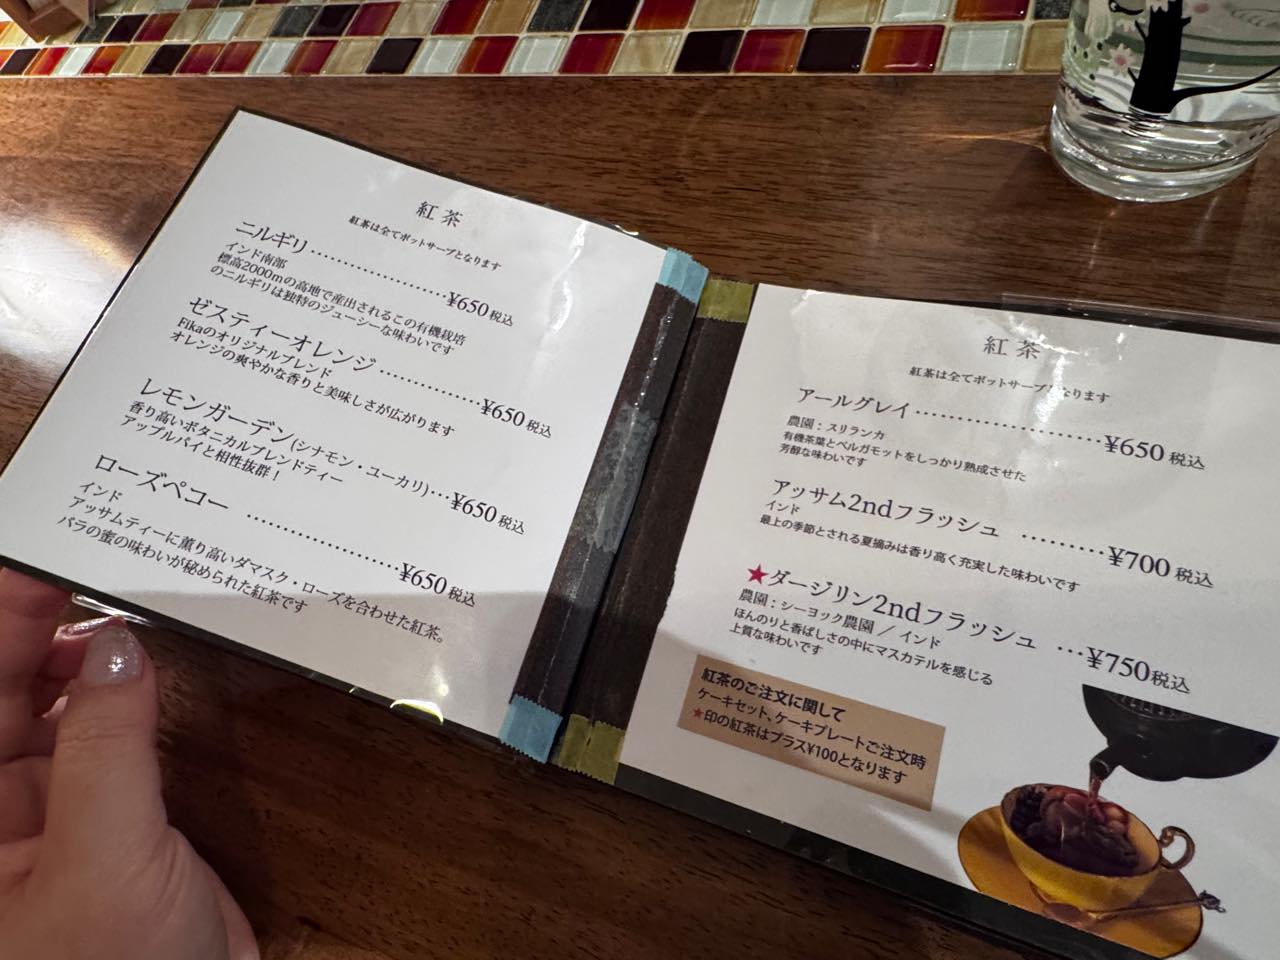 紅茶
紅茶は全てポットサーブとなります
ニルギリ……………………¥650税込
インド南部
標高2000mの高地で産出されるこの有機栽培
のニルギリは独特のジューシーな味わいです
ゼスティーオレンジ………………¥650税込
Fikaのオリジナルブレンド
オレンジの爽やかな香りと美味しさが広がります
レモンガーデン(シナモン・ユーカリ)…¥650税込
香り高いボタニカルブレンドティー
アップルパイと相性抜群！
ローズペコー ……………………¥650税込
インド
アッサムティーに薫り高いダマスク・ローズを合わせた紅茶。
バラの蜜の味わいが秘められた紅茶です
紅茶
紅茶は全てポットサーブとなります
アールグレイ……………………¥650税込
農園：スリランカ
有機茶葉とベルガモットをしっかり熟成させた
芳醇な味わいです
アッサム2ndフラッシュ …………¥700税込
インド
最上の季節とされる夏摘みは香り高く充実した味わいです
★ダージリン2ndフラッシュ …¥750税込
農園：シーヨック農園／インド
ほんのりと香ばしさの中にマスカテルを感じる
上質な味わいです
紅茶のご注文に関して
ケーキセット、ケーキプレートご注文時
★印の紅茶はプラス¥100となります